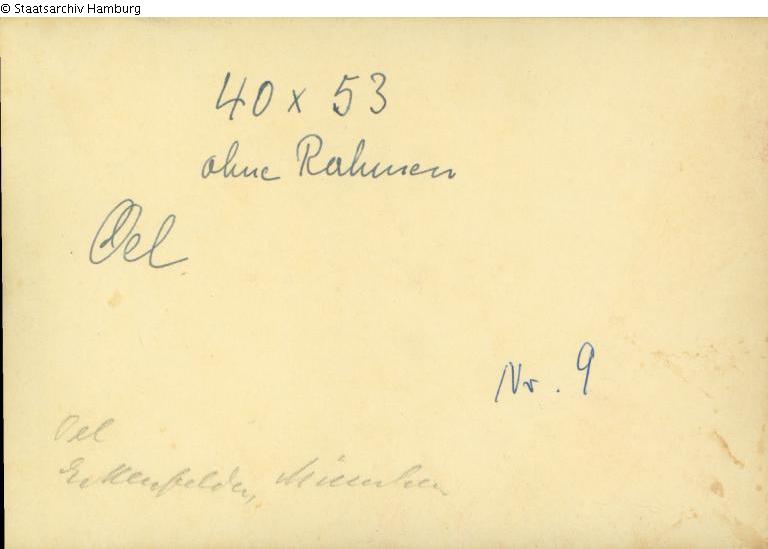 © Staatsarchiv Hamburg
40 x 53
ohne Rahmen
Oel
Nr. 9
Oel
Eckenfelder, München